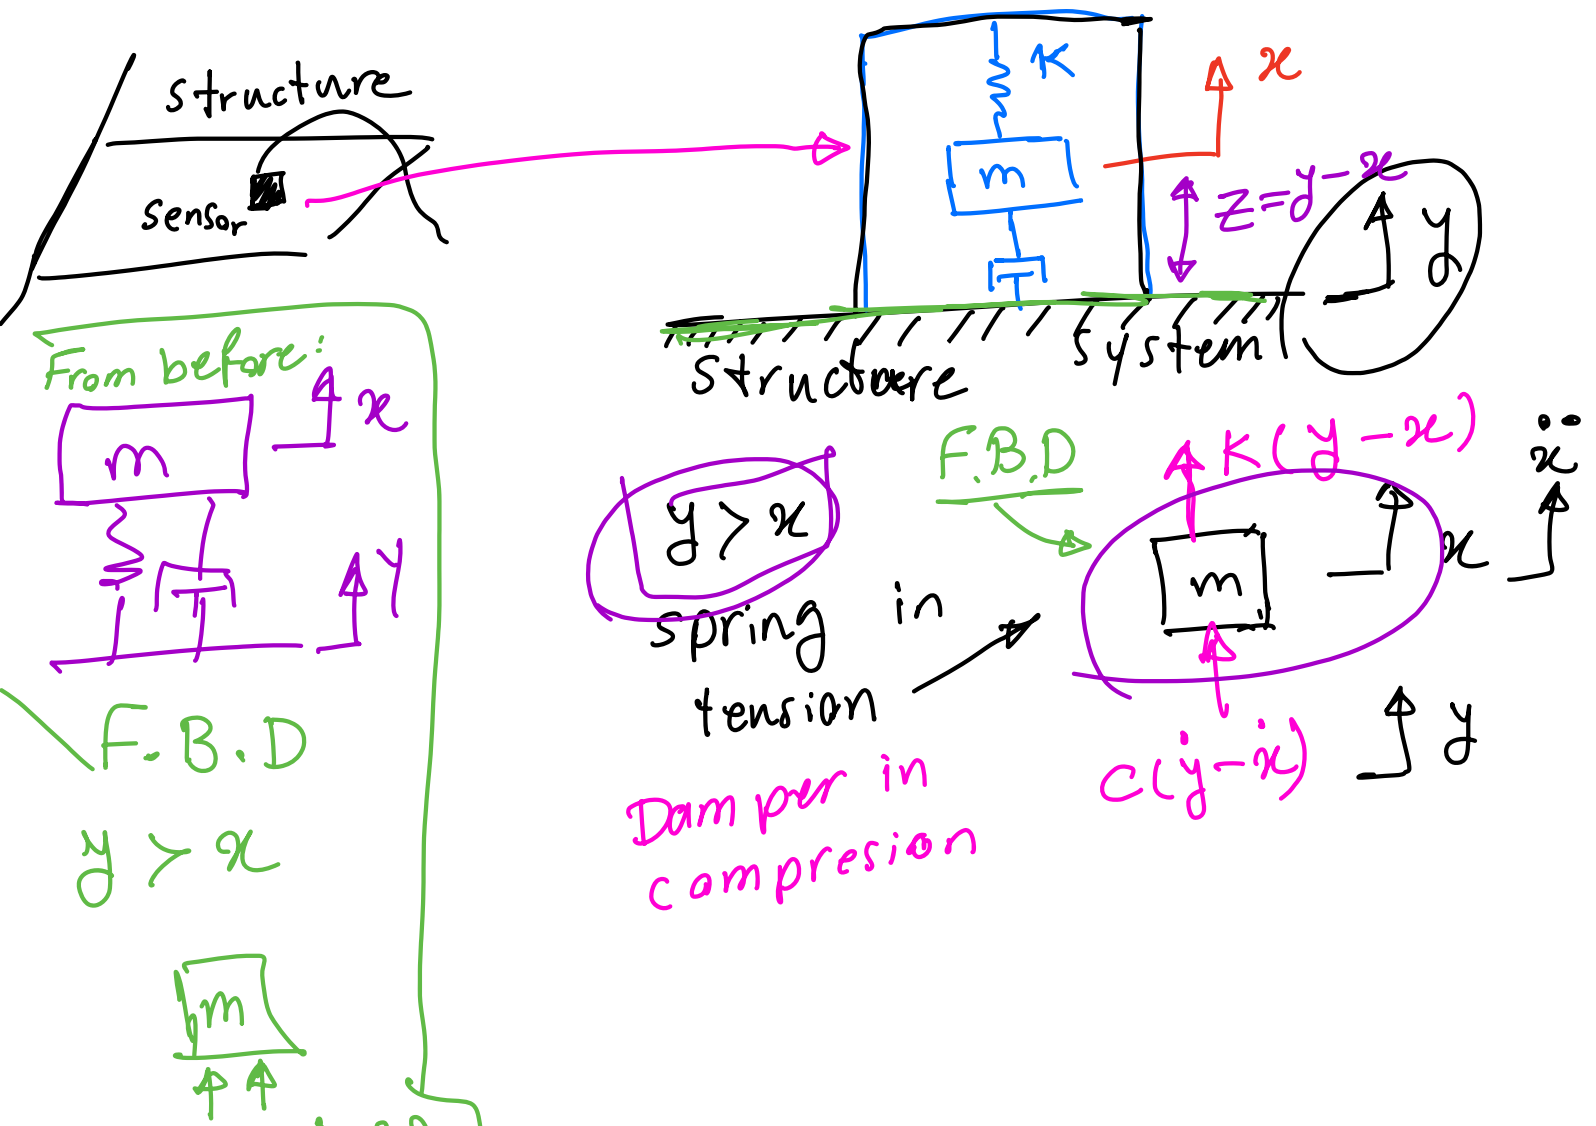 structure
sensor
K
m
x
z=y-x
y
structure
system
From before:
m
x
y
F.B.D
y > x
m
y > x
spring in
tension
Damper in
compresion
F.B.D
K(y-x)
ẍ
m
x
c(ẏ-ẋ)
y